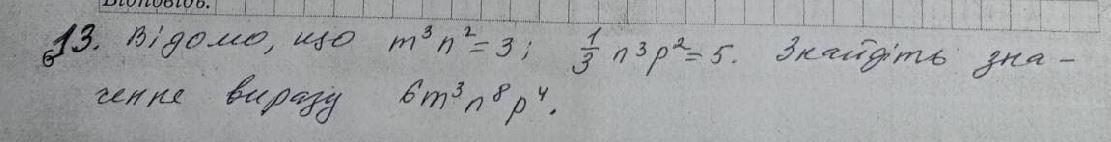 Відповідь.
13. Відомо, що m³n² = 3; 1/3 n³p² = 5. Знайдіть зна-
чення виразу 6m³n⁸p⁴.